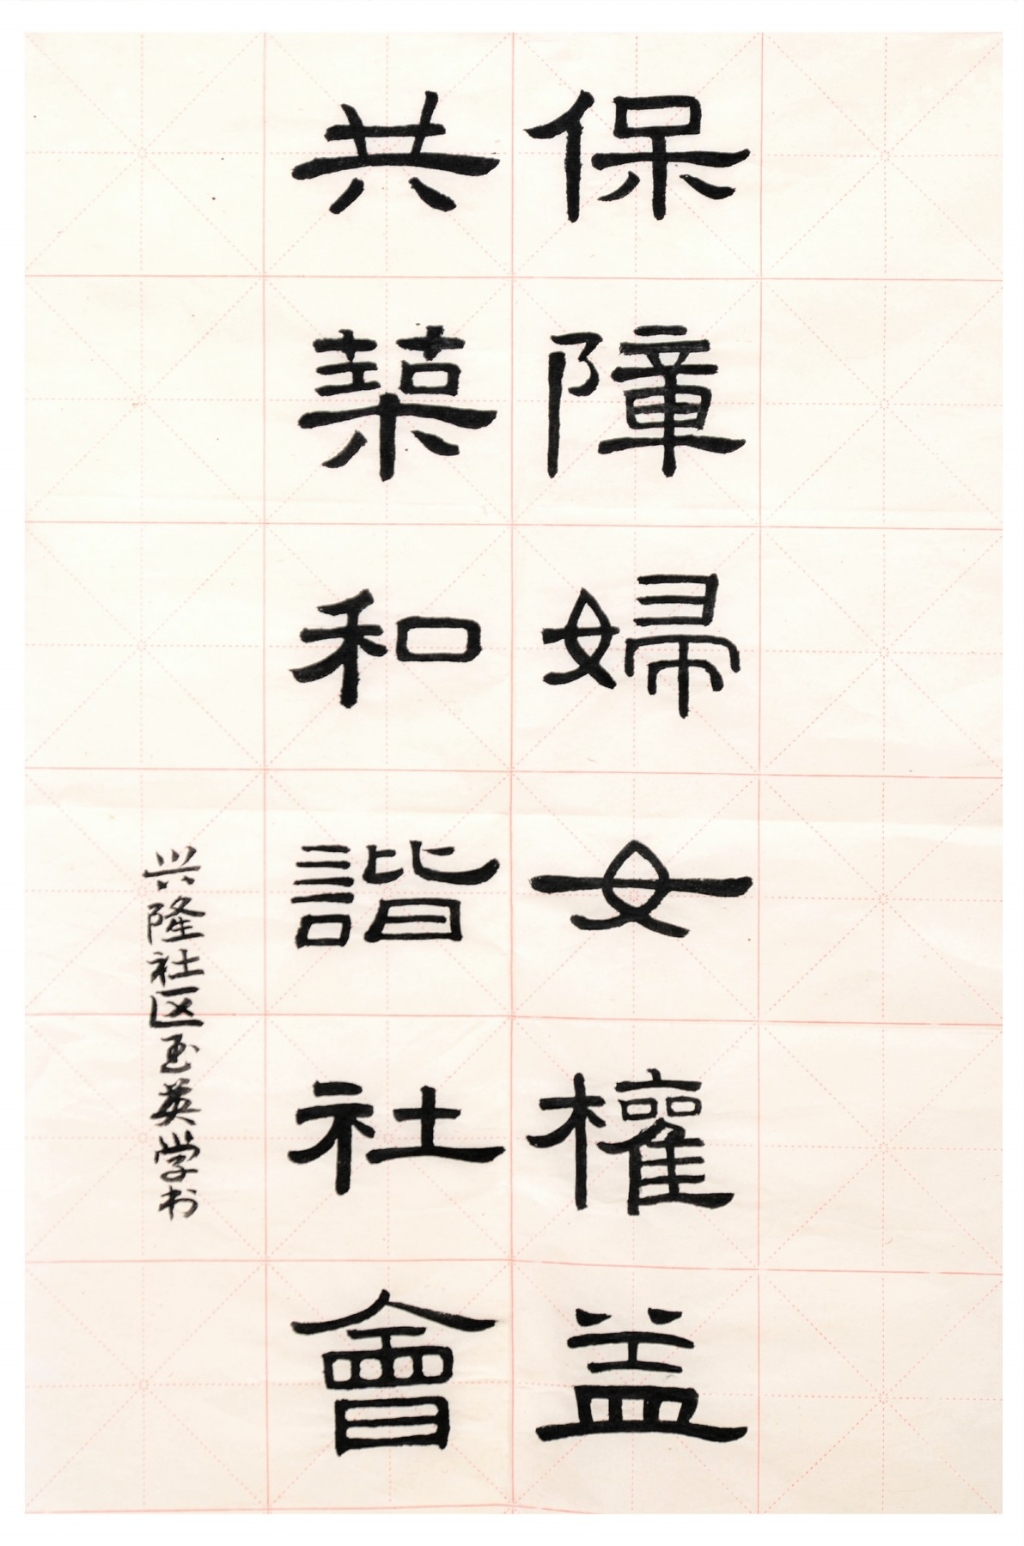 保障婦女權益
共築和諧社會
兴隆社区玉英学书